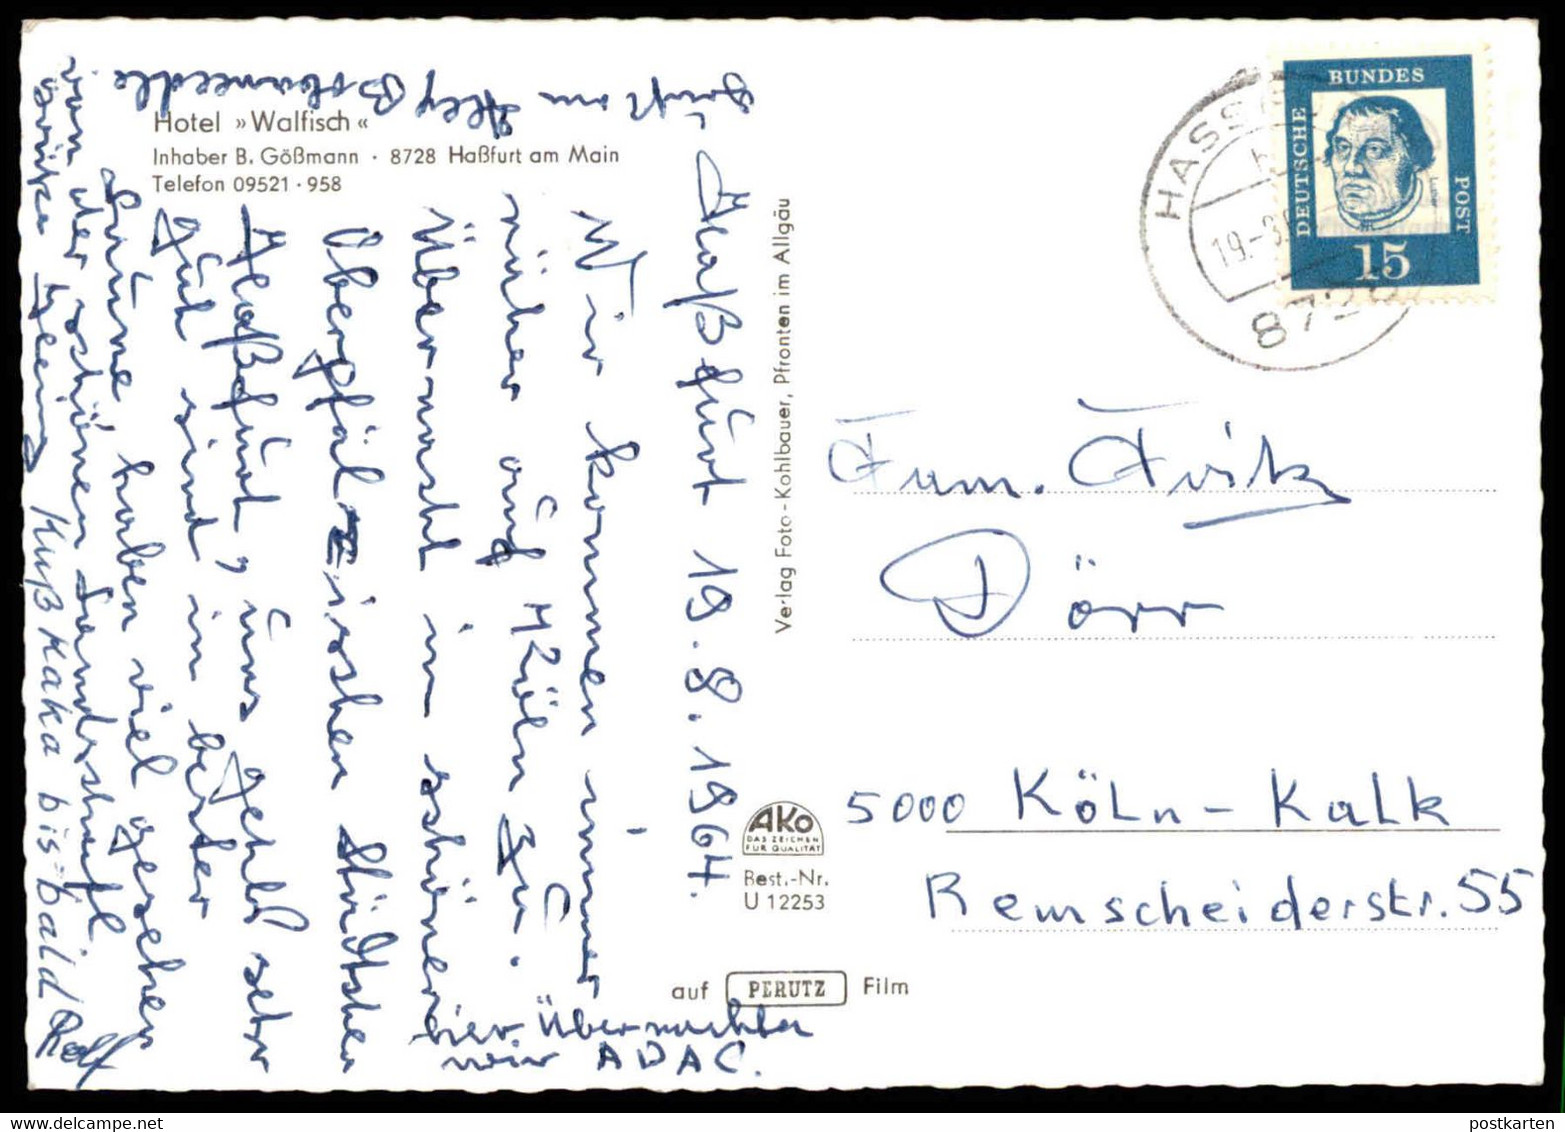 Hotel »Walfisch«
Inhaber B. Gößmann · 8728 Haßfurt am Main
Telefon 09521 · 958
Haßfurt 19.8.1964.
Wir kommen immer
näher auf Köln zu.
Übernacht in schöner
Oberpfälzischen Städtchen
Haßfurt, uns geht's sehr
gut sind in bester
Laune, haben viel gesehen
von der schönen Landschaft
Kuß Kaka bis bald Ralf
hier Übernachten
wir ADAC.
Verlag Foto-Kohlbauer, Pfronten im Allgäu
AKO
DAS ZEICHEN
FÜR QUALITÄT
Best.-Nr.
U 12253
auf PERUTZ Film
HASSF
19.-8.
8728
DEUTSCHE
BUNDES
POST
Luther
15
Fam. Fritz
Dörr
5000 Köln-Kalk
Remscheiderstr. 55
postkarten